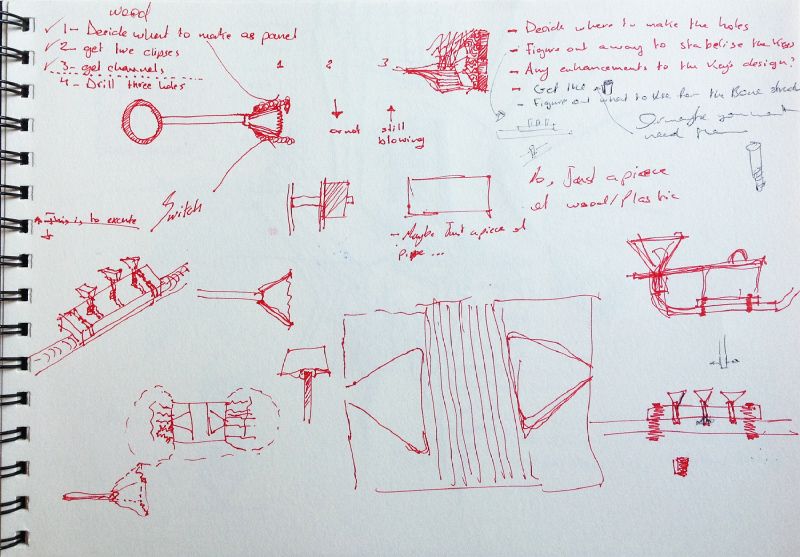 wood
✓ 1- Decide what to make as panel
✓ 2- get two clipses
✓ 3- get channels
4- Drill three holes
1 2 3
or not
still
blowing
- Decide where to make the holes
- Figure out a way to stabelise the Keys
- Any enhancements to the Key's design?
- Get the
- Figure out what to use for the Bone
Or maybe you won't
need them
Switch
No, Just a piece
of wood/Plastic
This is to execute
- Maybe Just a piece of
pipe ...